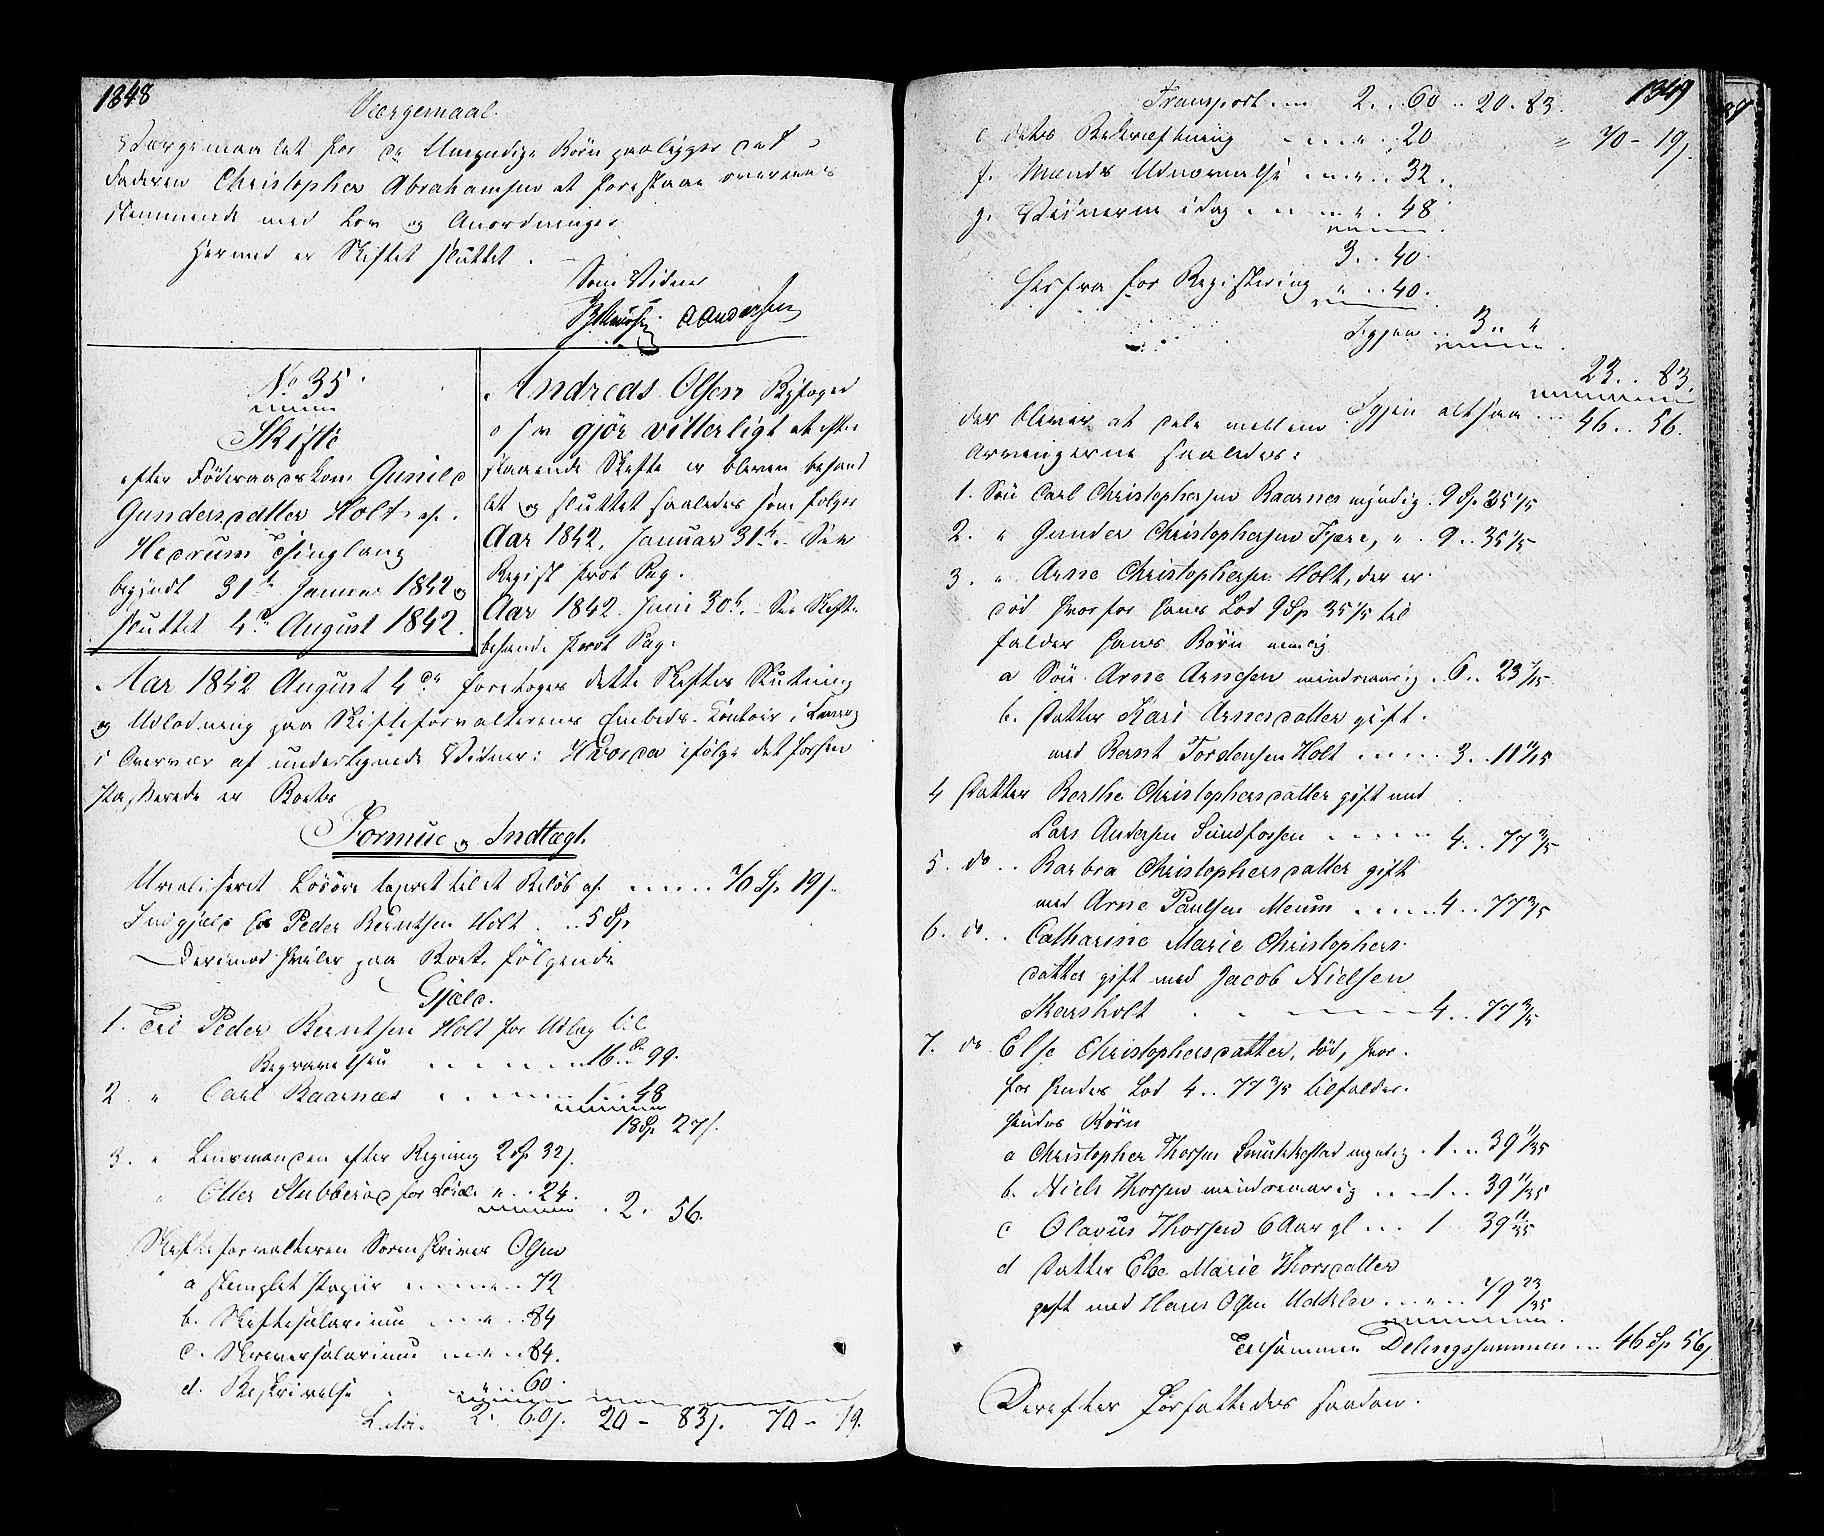 1348
Værgemaal.
Værgemaalet for de Umyndige Børn paaligger det
Faderen Christopher Abrahamsen at forestaae overeens
stemmende med Lov og Anordninger
Hermed er Skiftet sluttet.
Som Vidner
AAndersen
No 35
Skifte
efter Føderaadskone Gunild
Gundersdatter Holt af
Hedrum Thinglaug
begyndt 31te Januar 1842 og
sluttet 4de August 1842.
Andreas Olsen
gjør vitterligt at efter
staaende Skifte er bleven behand
let og sluttet saaledes som følger
Aar 1842, Januar 31te. See
Regist. Prot. Pag.
Aar 1842. Juni 30te. See Skifte
behand. Prot. Pag.
Aar 1842 August 4de foretoges dette Skiftes Slutning
og Udlodning paa Skifteforvalterens Embeds-Contoir i Laurvig
i Overvær af undertegnede Vidner: Hvorda ifølge det forhen
passerede er Boets
Formue og Indtægt.
Urealiseret Løsøre taxeret til et Beløb af . . . . . 70 Sp 19 s.
Indgjeld fra Peder Berntsen Holt . . . 5 Sp
Derimod hviler paa Boet følgende
Gjeld.
1. Til Peder Berntsen Holt for Udlæg til
Begravelsen . . . . . . . 16 . . 99.
2 " Carl Baarnæs . . . . . . 1 . . 48
18 Sp 27 s.
3. " Lensmanden efter Regning 2 Sp 32 s.
" Otter Stubberød for " . . 24. . 2. 56.
Skifteforvalteren Sorenskriver Olsen
a stemplet Papiir . . . . " . . 72
b. Skiftesalarium . . . " . . 84
c. Skriversalarium . . . " . . 84.
d. Beskrivelse . . 60.
Latr. 2. 60 s. 20 - 83 s. 70 - 19.
1349
Transport . . . 2. . 60 . . 20. 83.
e dets Bekræftning . . . " . . 20 " 70 - 19 s.
f. Mænds Udnævnelse . . . " . . 32 . .
g. Vidnerne i dag . . . . " . 48
3. . 40.
Herfra for Registering " . . 40.
Igjen . . 3. . "
23. . 83.
Igjen altsaa . . . 46. . 56.
der bliver at dele mellem
Arvingerne saaledes:
1. Søn Carl Christophersen Baarnes myndig. 9 Sp 35 1/5
2. " Gunder Christophersen Fjære, " . 9. . 35 1/5
3. " Arne Christophersen Holt, der er
død hvorfor hans Lod 9 Sp 35 1/5 til
falder hans Børn nemlig
a Søn Arne Arnesen mindreaarig . 6. . 23 7/15
b. Datter Kari Arnesdatter gift
med Bernt Torstensen Holt . . . . . 3. . 11 11/15
4 Datter Berthe Christophersdatter gift med
Lars Andersen Sundfossen . . . . . 4. . 77 3/5
5. do . . Barbra Christophersdatter gift
med Arne Paulsen Meum . . . . . 4. . 77 3/5
6. do . . Catharine Marie Christophers
datter gift med Jacob Nielsen
Skarsholt . . . . . . . 4. . 77 3/5
7. do Else Christophersdatter, død, hvor
for hendes Lod 4. . 77 3/5 tilfalder
hendes Børn
a Christopher Thorsen myndig . 1 . . 39 11/35
b. Niels Thorsen mindreaarig . . . 1. . 39 11/35
c Olavus Thorsen 6 Aar gl . . . 1 . 39 11/35
d Datter Else Marie Thorsdatter
gift med Hans Olsen Udkler . . . " . . 79 23/35
Tilsammen Delingssummen . . . 46 Sp 56 s
Derefter forfattedes saadan.